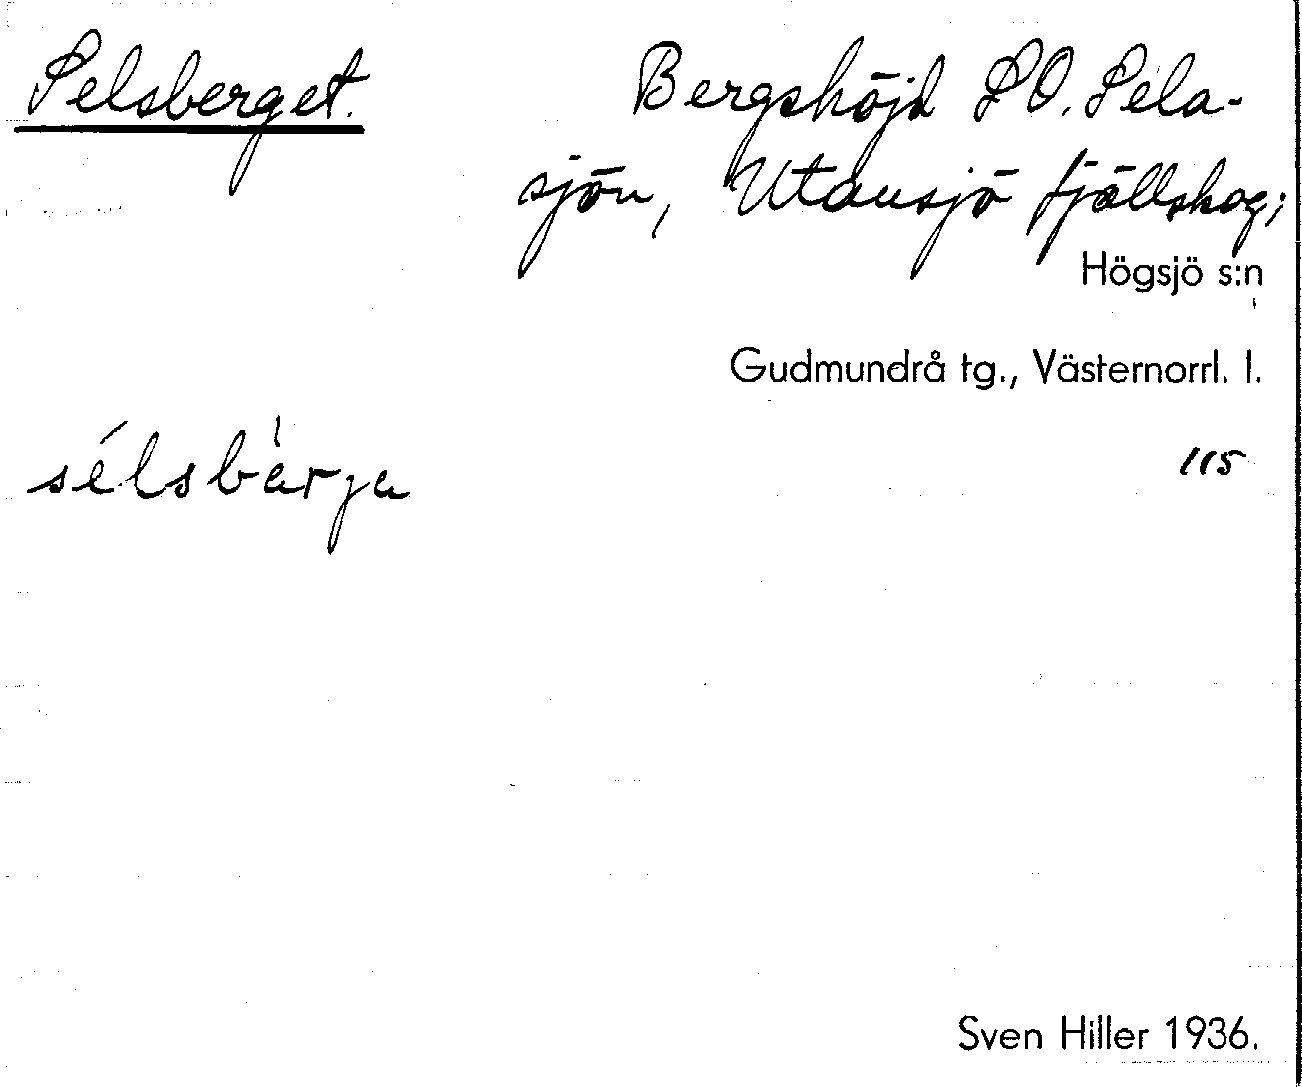 Selsberget.
Bergshöjd SO. Sela-
sjön, Utansjö fjällskog;
Högsjö s:n
Gudmundrå tg., Västernorrl. l.
115
sélsbàrja
Sven Hiller 1936.